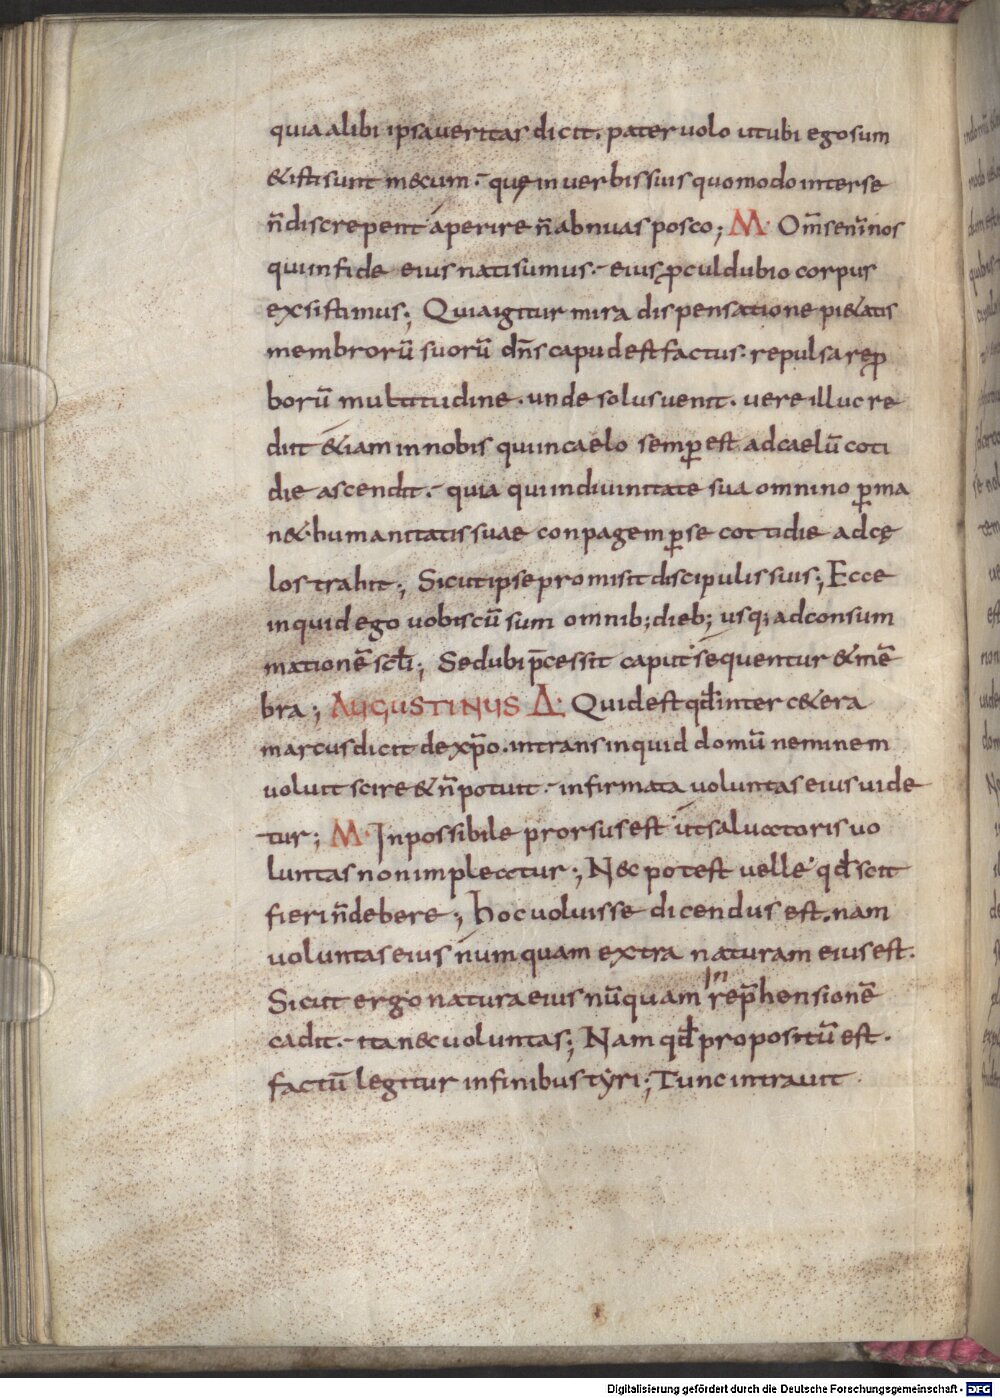 quia alibi ipsa veritas dicit. pater volo ut ubi ego sum
& isti sunt mecum. quę in verbis suis quomodo inter se
n̄ discrepent aperire n̄ abnuas posco; M· Om̄s enī nos
qui in fide eius nati sumus. eius ꝓcul dubio corpus
exsistimus; Quia igitur mira dispensatione pi&atis
membrorū suorū dn̄s caput est factus. repulsa reꝓ
borū multitudine. unde solus venit. vere illuc re
diit &iam in nobis qui in caelo semp̄ est ad caelū coti
die ascendit. quia qui in divinitate sua omnino ꝑma
n& humanitatis suae conpagem ꝑ se cottidie ad cę
los trahit; Sicut ipse promisit discipulis suis; Ecce
inquid ego vobiscū sum omnib; dieb; usq; ad consum
mationē scłi; Sed ubi p̄cessit caput sequentur & mē
bra; AUGUSTINUS Δ· Quid est qđ inter c&era
marcus dicit de xp̄o. intrans inquid domū neminem
voluit scire & n̄ potuit. infirmata voluntas eius vide
tur; M· Inpossibile prorsus est ut salvatoris vo
luntas non impleatur; Nec potest velle qđ scit
fieri n̄ debere; hoc voluisse dicendus est. nam
voluntas eius numquam extra naturam eius est.
Sicut ergo natura eius nūquam in rep̄hensionē
cadit. ita nec voluntas; Nam qđ propositū est.
factū legitur in finibus tyri; Tunc intravit
Digitalisierung gefördert durch die Deutsche Forschungsgemeinschaft - DFG